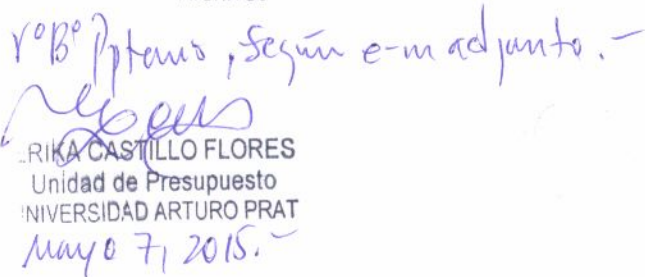 VºBº Pptario, según e-m adjunto.-
RIKA CASTILLO FLORES
Unidad de Presupuesto
NIVERSIDAD ARTURO PRAT
Mayo 7, 2015.-